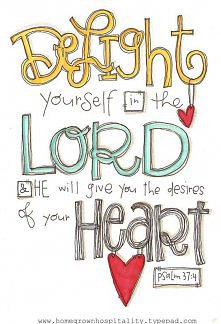 DeLight
yourself in the
LORD
& HE will give you the desires
of your HEART
psalm 37:4
www.homegrownhospitality.typepad.com